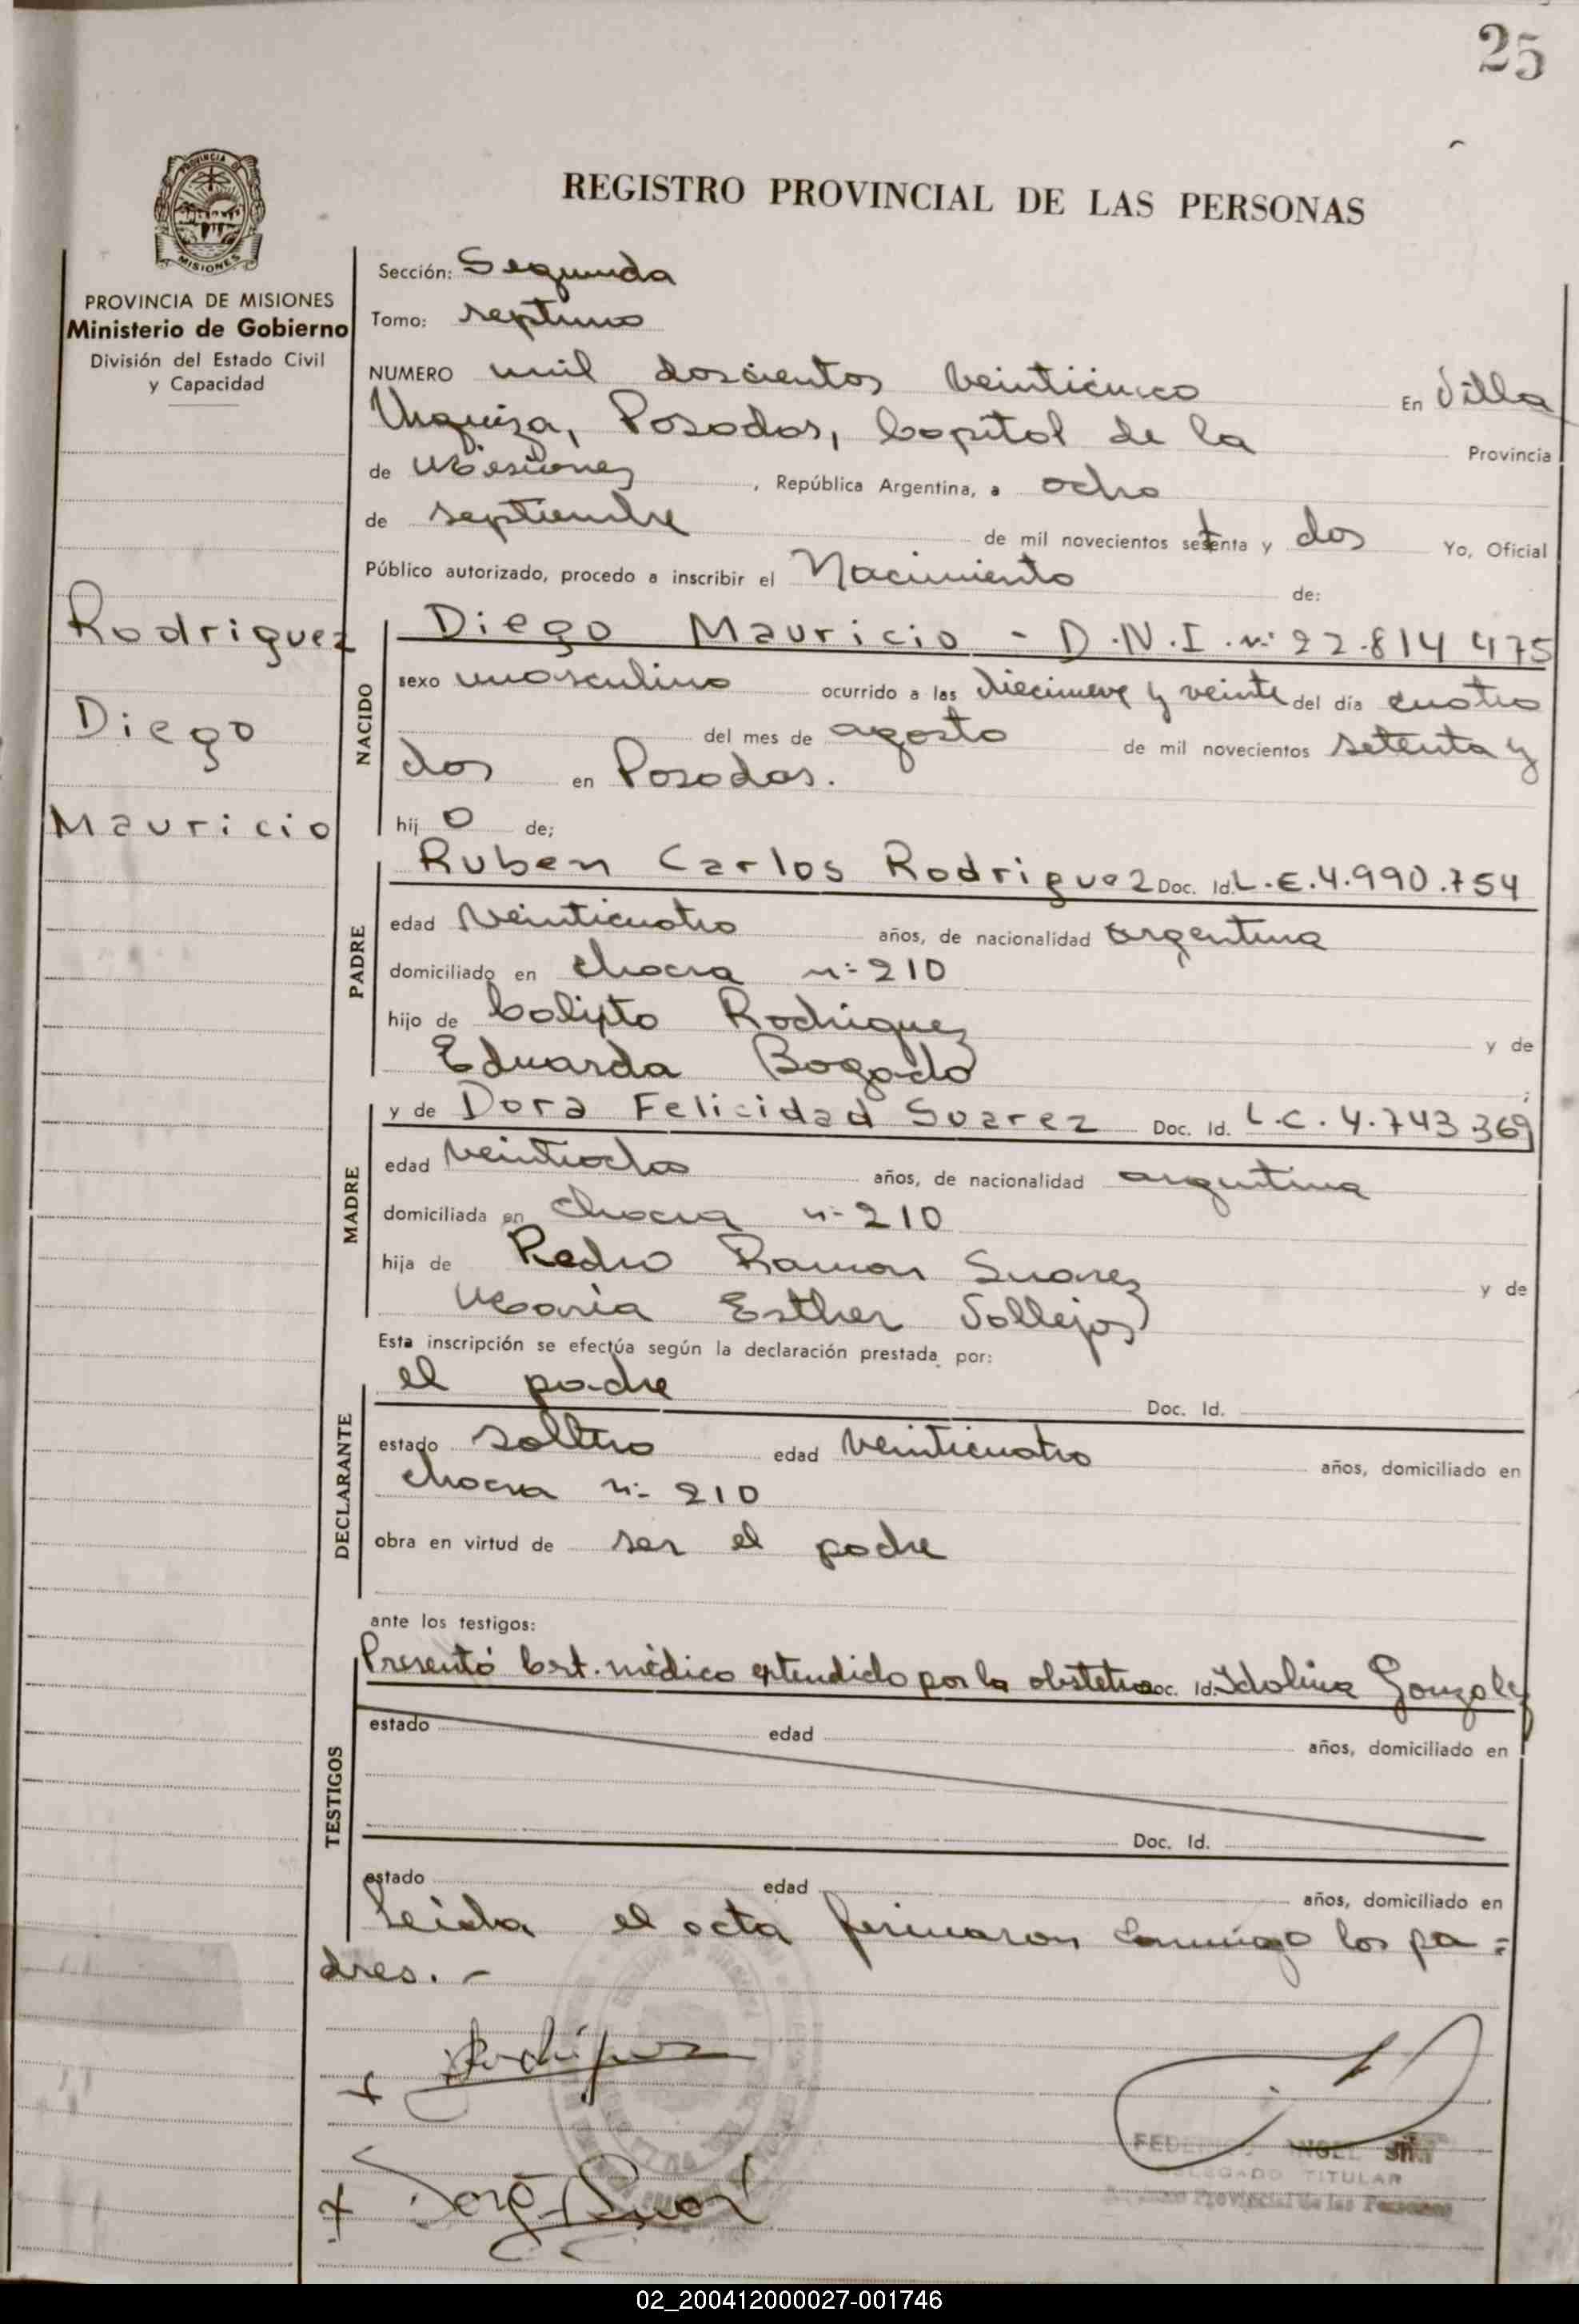 25
PROVINCIA DE
MISIONES
REGISTRO PROVINCIAL DE LAS PERSONAS
PROVINCIA DE MISIONES
Ministerio de Gobierno
División del Estado Civil
y Capacidad
Rodriguez
Diego
Mauricio
Sección: Segunda
Tomo: septimo
NUMERO mil doscientos veinticinco En Villa
Urquiza, Posadas, Capital de la Provincia
de Misiones, República Argentina, a ocho
de septiembre de mil novecientos setenta y dos Yo, Oficial
Público autorizado, procedo a inscribir el Nacimiento de:
NACIDO
Diego Mauricio - D.N.I. nº 22.814 475
sexo masculino ocurrido a las diecinueve y veinte del día cuatro
del mes de agosto de mil novecientos setenta y
dos en Posadas.
hij o de;
PADRE
Ruben Carlos Rodriguez Doc. Id. L.E. 4.990.754
edad veinticuatro años, de nacionalidad argentina
domiciliado en chacra nº 210
hijo de Calixto Rodriguez y de
Eduarda Bogado ;
MADRE
y de Dora Felicidad Suarez Doc. Id. L.C. 4.743 369
edad veintiocho años, de nacionalidad argentina
domiciliada en chacra nº 210
hija de Pedro Ramon Suarez y de
Maria Esther Vallejos
Esta inscripción se efectúa según la declaración prestada por:
DECLARANTE
el padre Doc. Id.
estado soltero edad veinticuatro años, domiciliado en
chacra nº 210
obra en virtud de ser el padre
ante los testigos:
TESTIGOS
Presentó Cert. médico extendido por la obstetra Doc. Id. Idolina Gonzalez
estado edad años, domiciliado en
Doc. Id.
estado edad años, domiciliado en
Leida el acta firmaron conmigo los pa=
dres. -
x Rodriguez
x
ANGEL
DELEGADO TITULAR
Registro Provincial de las Personas
02_200412000027-001746